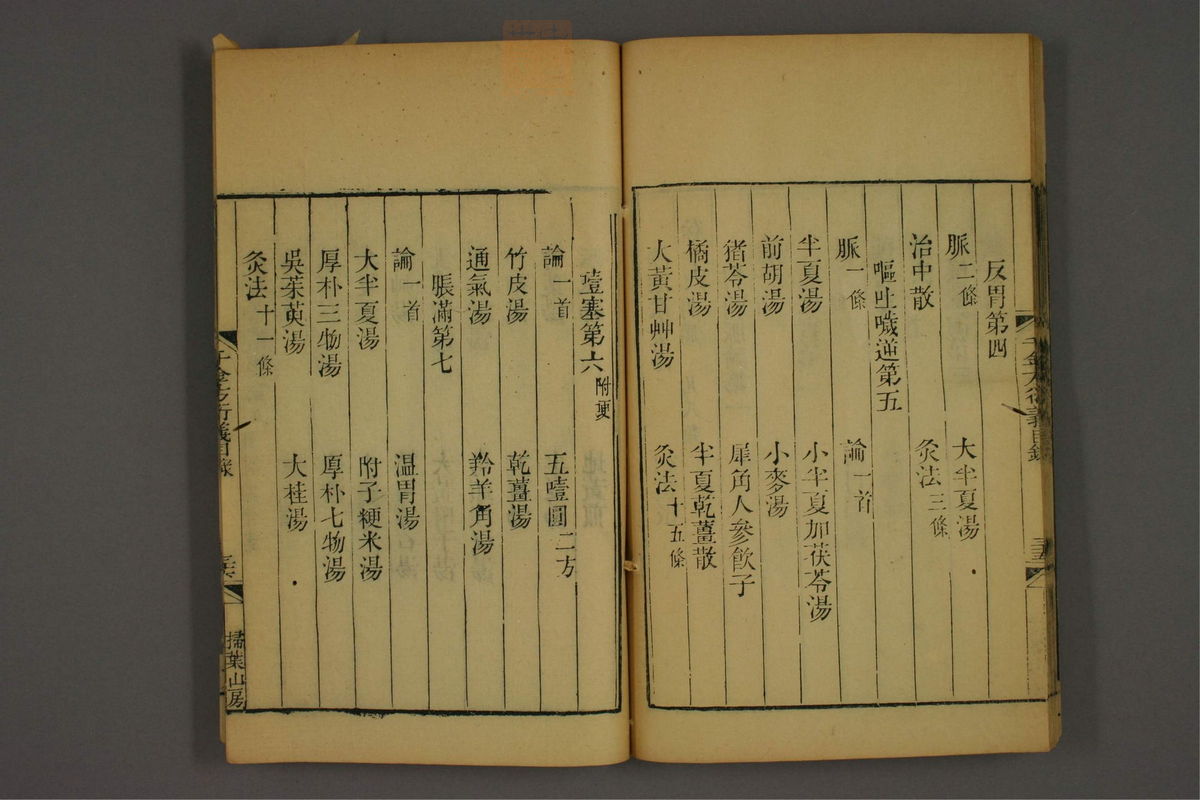 反胃第四
脈二條　大半夏湯
治中散　灸法三條
嘔吐噦逆第五
脈一條　論一首
半夏湯　小半夏加茯苓湯
前胡湯　小麥湯
猪苓湯　犀角人參飲子
橘皮湯　半夏乾薑散
大黃甘艸湯　灸法十五條
噎塞第六附哽
論一首　五噎圓二方
竹皮湯　乾薑湯
通氣湯　羚羊角湯
脹滿第七
論一首　溫胃湯
大半夏湯　附子粳米湯
厚朴三物湯　厚朴七物湯
吳茱萸湯　大桂湯
灸法十一條
千金方衍義目錄
掃葉山房